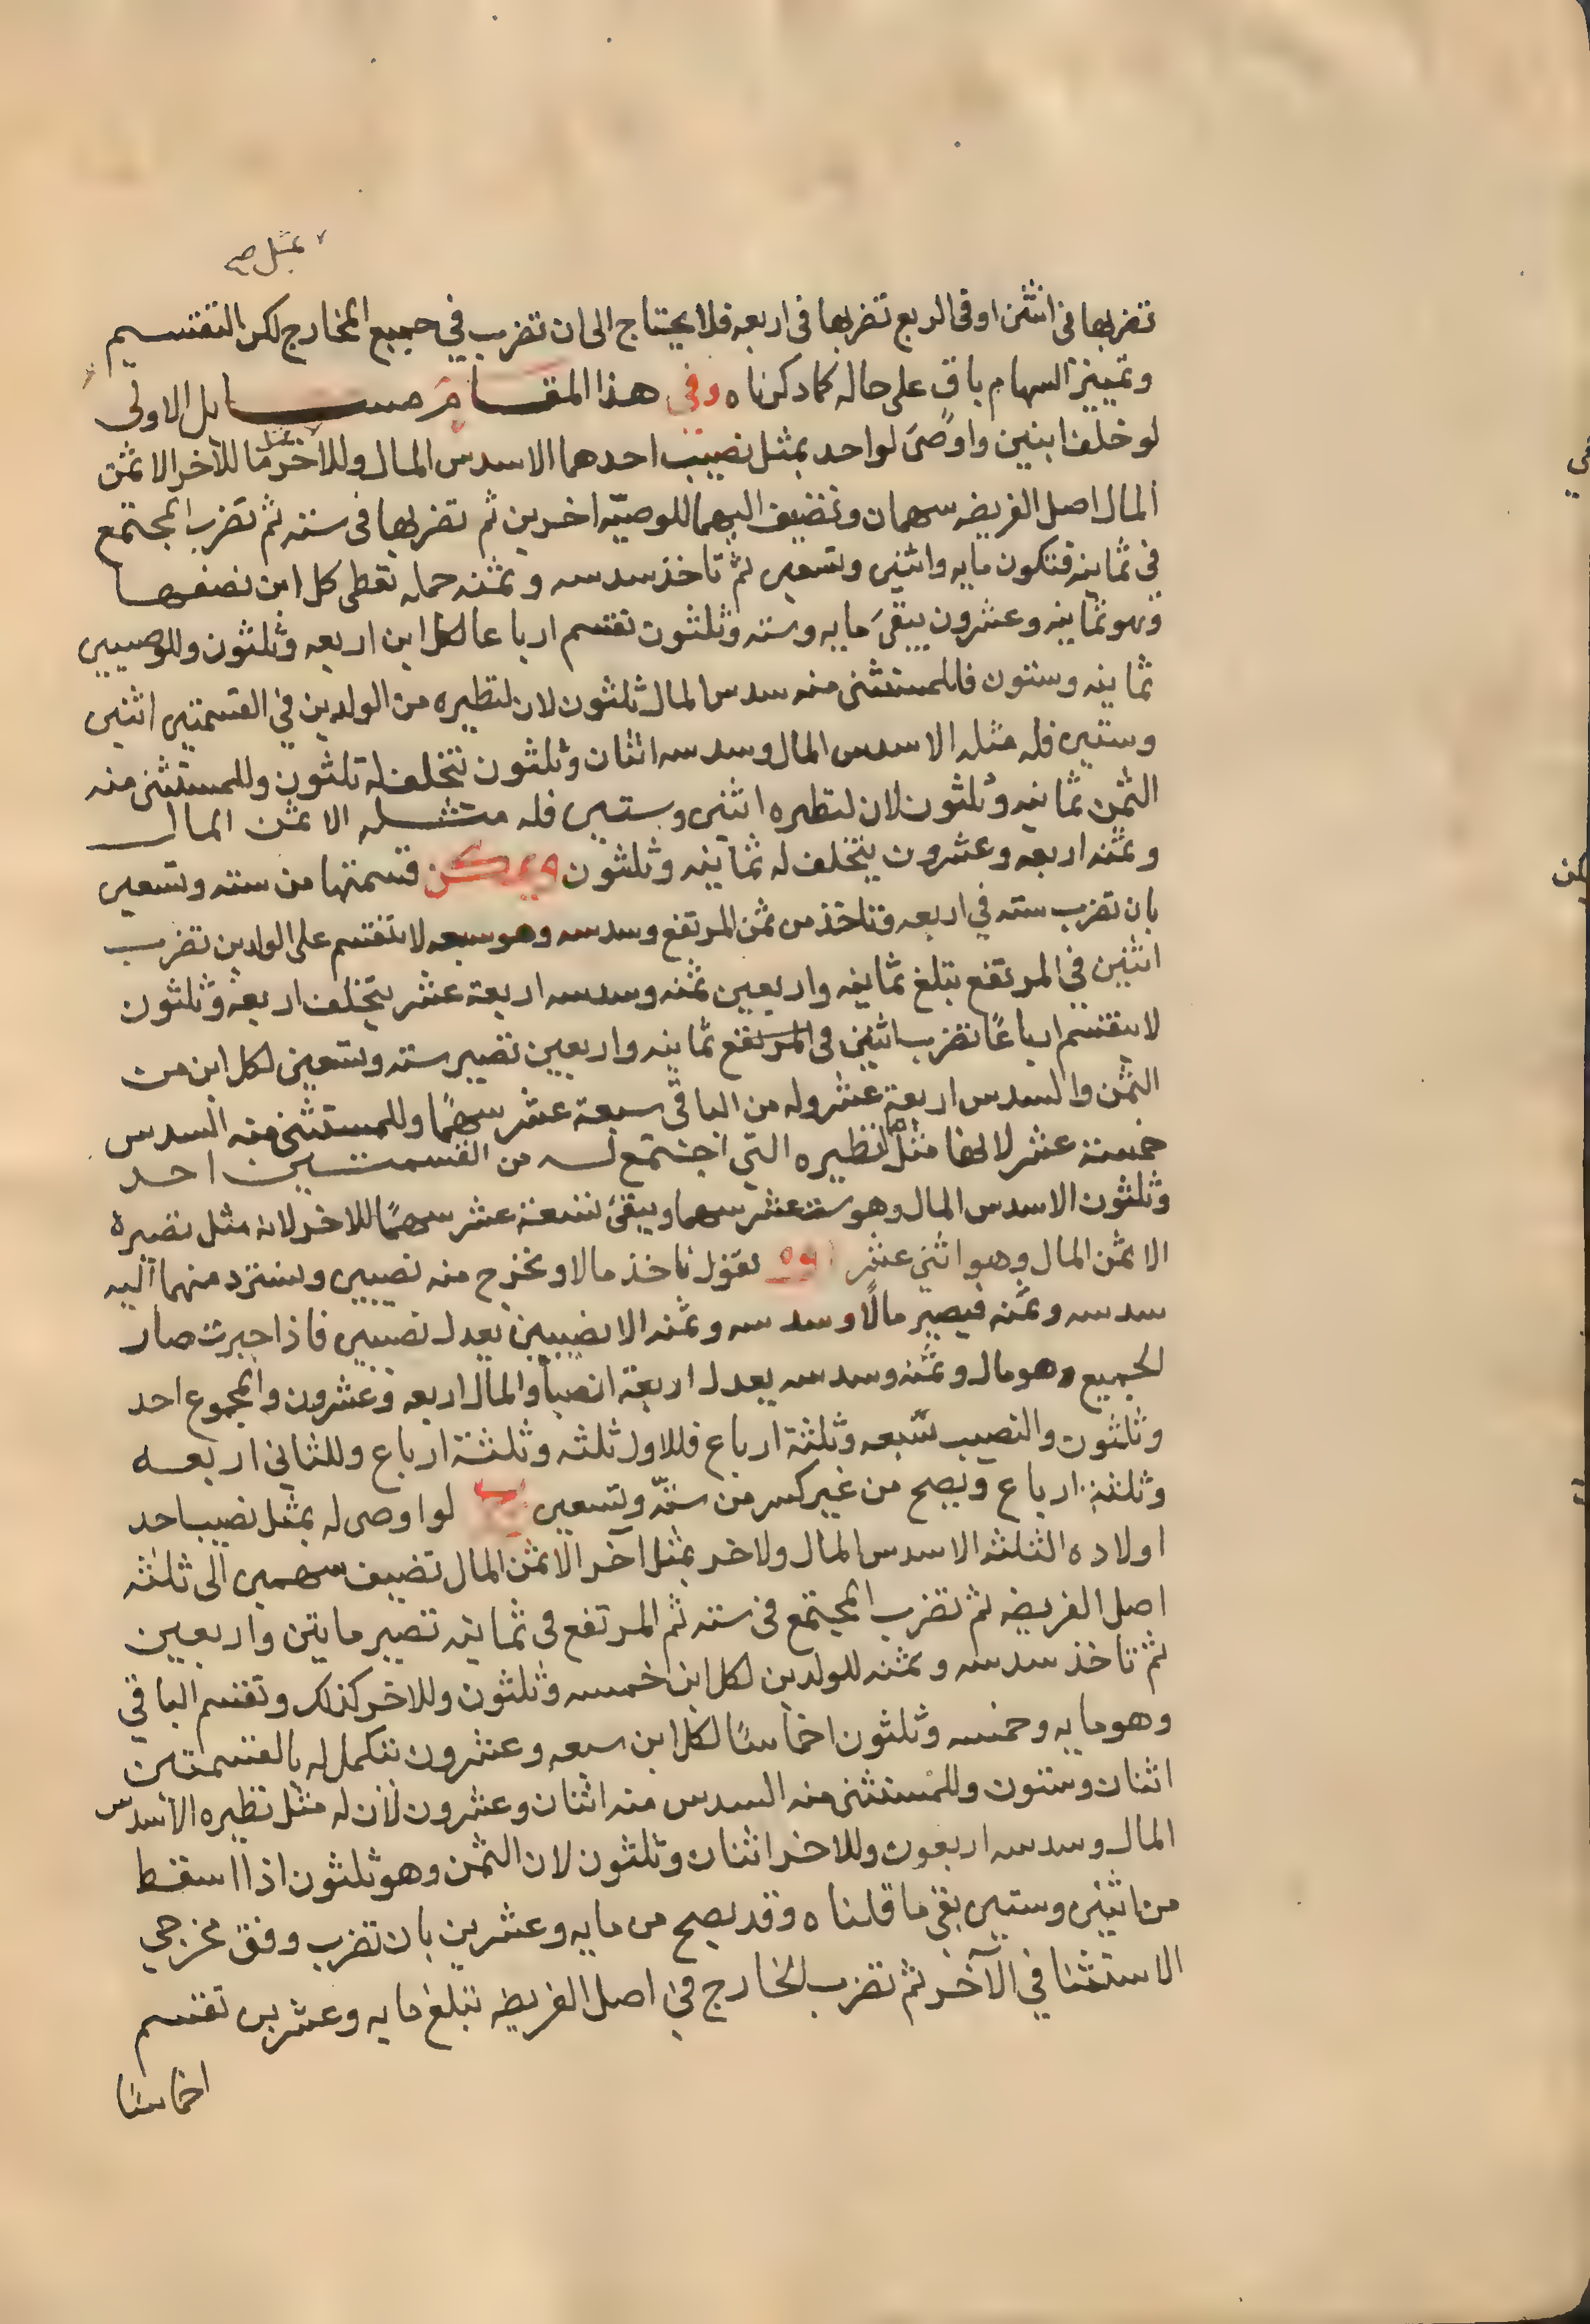 بمثل صح
تضربها في اثنين او في الربع تضربها في اربعه فلا يحتاج الى ان تضرب في جميع المخارج لكن التقسيم
وتمييز السهام باق على حاله كما ذكرناه وفي هذا المقام مسايل الاولى
لو خلف ابنين واوصى لواحد بمثل نصيب احدهما الا سدس المال وللاخر ما للاخر الا ثمن
المال اصل الفريضه سهمان وتضيف اليهما للوصيّه اخرين ثم تضربها في سته ثم تضرب المجتمع
في ثمانيه فتكون مايه واثنين وتسعين ثم تاخذ سدسه وثمنه جمله تعطى كل ابن نصفها
وهو ثمانيه وعشرون يبقى مايه وسته وثلثون تقسم ارباعا لكل ابن اربعه وثلثون وللوصيين
ثمانيه وستون فللمستثنى منه سدس المال ثلثون لان لنظيره من الولدين في القسمتين اثنين
وستين فله مثله الا سدس المال وسدسه اثنان وثلثون تتخلف له ثلثون وللمستثنى منه
الثمن ثمانيه وثلثون لان لنظيره اثنين وستين فله مثله الا ثمن المال
وثمنه اربعه وعشرون يتخلف له ثمانيه وثلثون ويمكن قسمتها من سته وتسعين
بان تضرب سته في اربعه فتاخذ من ثمن المرتفع وسدسه وهو سبعه لا تنقسم على الولدين تضرب
اثنين في المرتفع تبلغ ثمانيه واربعين ثمنه وسدسه اربعة عشر يتخلف اربعة وثلثون
لا ينقسم ارباعًا تضرب اثنين في المرتفع ثمانيه واربعين تصير سته وتسعين لكل ابن من
الثمن والسدس اربعة عشر وله من الباقي سبعة عشر سهمًا وللمستثنى منه السدس
خمسة عشر لانها مثل نظيره التي اجتمع له من القسمتين احد
وثلثون الا سدس المال وهو ستة عشر سهما ويبقى تسعة عشر سهمًا للاخر لانه مثل نصيره
الا ثمن المال وهو اثنى عشر نقول ناخذ مالا ونخرج منه نصيبين ونسترد منهما اليه
سدسه وثمنه فيصير مالًا وسدسه وثمنه الا نصيبين يعدل نصيبين فاذا جبرت صار
الجميع وهو مال وثمنه وسدسه يعدل اربعة انصبا والمال اربعه وعشرون والمجموع احد
وثلثون والنصيب سبعه وثلثة ارباع فللاول ثلثه وثلثة ارباع وللثاني اربعه
وثلثة ارباع ويصح من غير كسر من ستّه وتسعين ب لو اوصى له بمثل نصيب احد
اولاده الثلثه الا سدس المال ولاخر بمثل آخر الا ثمن المال تضيف سهمين الى ثلثه
اصل الفريضه ثم تضرب المجتمع في سته ثم المرتفع في ثمانيه تصير مايتين واربعين
ثم تاخذ سدسه وثمنه للولدين لكل ابن خمسه وثلثون وللاخر كذلك وتقسم الباقي
وهو مايه وخمسه وثلثون اخماسًا لكل ابن سبعه وعشرون تتكمل له بالقسمتين
اثنان وستون وللمستثنى منه السدس منه اثنان وعشرون لان له مثل نظيره الا سدس
المال وسدسه اربعون وللاخر اثنان وثلثون لان الثمن وهو ثلثون اذا اسقط
من اثنين وستين بقى ما قلناه وقد يصح من مايه وعشرين بان تضرب وفق مخرجي
الاستثنا في الآخر ثم تضرب الخارج في اصل الفريضه تبلغ مايه وعشرين تقسم
اخماسًا